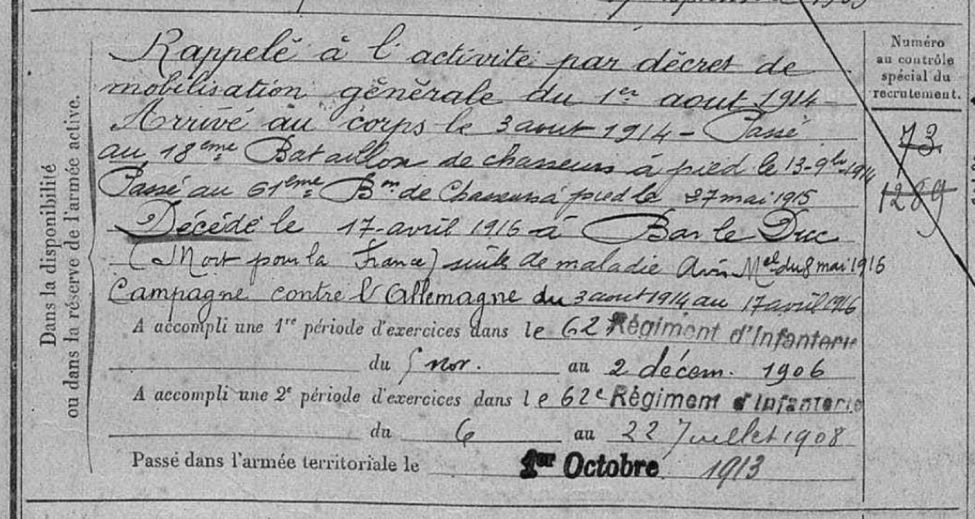 Numéro
au contrôle
spécial du
recrutement.
73
1289
Dans la disponibilité
ou dans la réserve de l'armée active.
Rappelé à l'activité par décret de
mobilisation générale du 1er aout 1914
Arrivé au corps le 3 aout 1914 - Passé
au 18eme Bataillon de chasseurs à pied le 13-9bre 1914
Passé au 61eme Bon de Chasseurs à pied le 27 mai 1915
Décédé le 17 avril 1916 à Bar le Duc
(Mort pour la France) suite de maladie Avis Mel du 8 mai 1916
Campagne contre l'Allemagne du 3 aout 1914 au 17 avril 1916
A accompli une 1re période d'exercices dans le 62 Régiment d'Infanterie
du nov. au 2 décem. 1906
A accompli une 2e période d'exercices dans le 62e Régiment d'Infanterie
du 6 au 22 Juillet 1908
Passé dans l'armée territoriale le 1er Octobre 1913